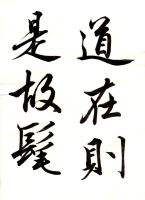 道在則
是故髦